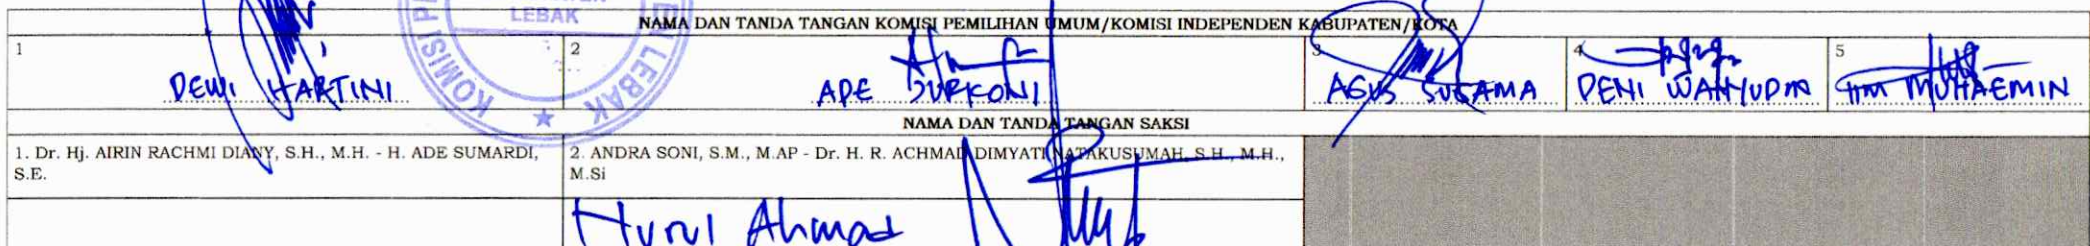 LEBAK
KOMISI PE
EN LEBAK
NAMA DAN TANDA TANGAN KOMISI PEMILIHAN UMUM/KOMISI INDEPENDEN KABUPATEN/KOTA
1 2 3 4 5
DEWI HARTINI ADE JURKONI AGUS SUGAMA DENI WAHYUDIN IIM MUHAEMIN
NAMA DAN TANDA TANGAN SAKSI
1. Dr. Hj. AIRIN RACHMI DIANY, S.H., M.H. - H. ADE SUMARDI,
S.E.
2. ANDRA SONI, S.M., M.AP - Dr. H. R. ACHMAD DIMYATI NATAKUSUMAH, S.H., M.H.,
M.Si
Hurul Ahmad